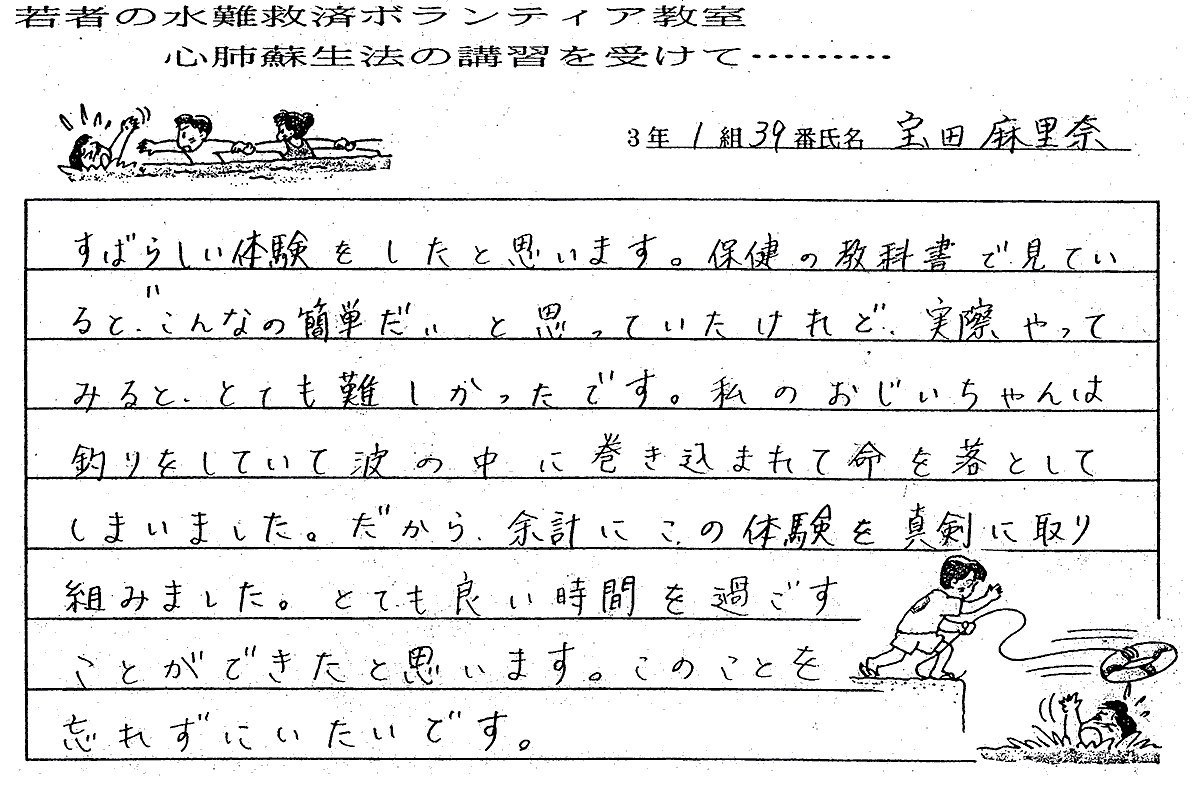 若者の水難救済ボランティア教室
心肺蘇生法の講習を受けて………
3年1組39番氏名 宝田麻里奈
すばらしい体験をしたと思います。保健の教科書で見てい
ると、"こんなの簡単だ"と思っていたけれど、実際やって
みると、とても難しかったです。私のおじいちゃんは
釣りをしていて波の中に巻き込まれて命を落として
しまいました。だから、余計にこの体験を真剣に取り
組みました。とても良い時間を過ごす
ことができたと思います。このことを
忘れずにいたいです。